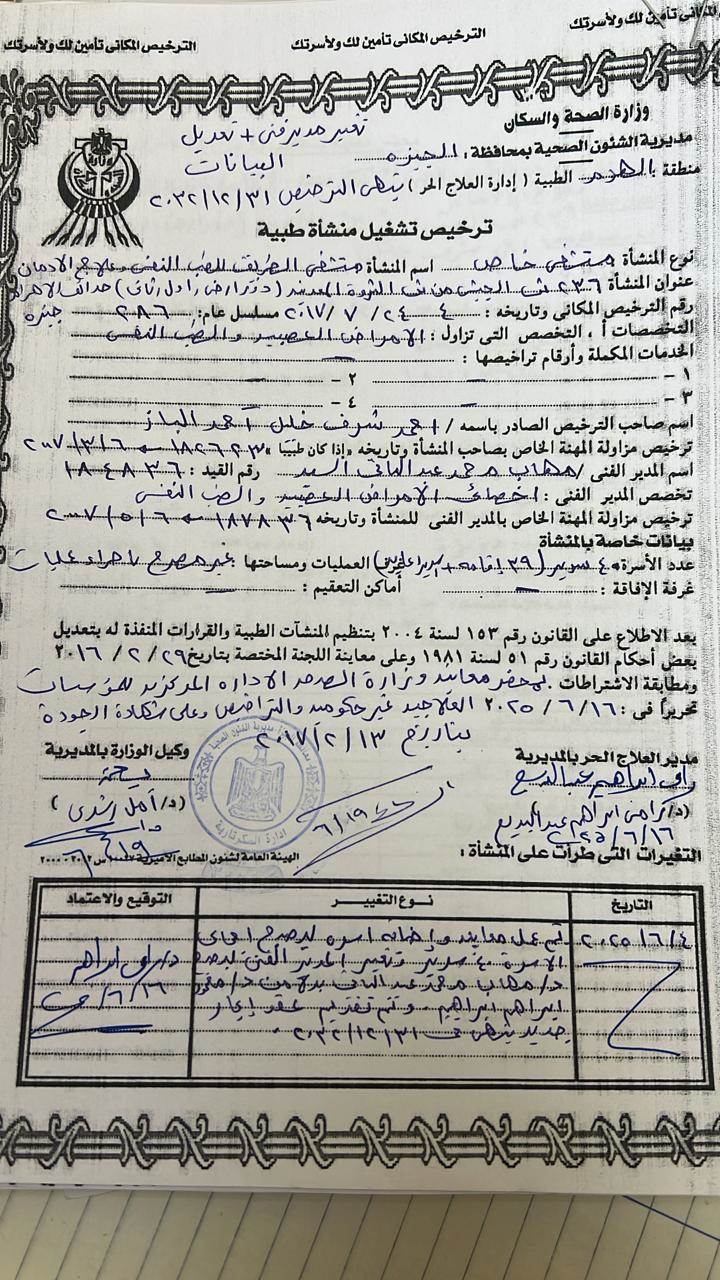 الترخيص المكانى تأمين لك ولأسرتك
الترخيص المكانى تأمين لك ولأسرتك
المكانى تأمين لك ولأسرتك
وزارة الصحة والسكان
تغيير مدير فنى + تعديل البيانات
مديرية الشئون الصحية بمحافظة : الجيزة
منطقة : الهرم الطبية ( إدارة العلاج الحر ) ينتهى الترخيص ٢٠٣٢/١٢/٣١
ترخيص تشغيل منشأة طبية
نوع المنشأة مستشفى خاص اسم المنشأة مستشفى الطريق للطب النفسى وعلاج الادمان
عنوان المنشأة ٢٣٦ ش الجيش من ش الثروة المعدنية ( دور ارضى و اول وثانى ) حدائق الاهرام جيزة
رقم الترخيص المكانى وتاريخه : ٤ ٢٠١٧/٧/٢٤ مسلسل عام : ٢٨٦
التخصصات أ ، التخصص التى تزاول : الامراض العصبية والطب النفسى
الخدمات المكملة وأرقام تراخيصها :
١ - ٢ -
٣ - ٤ -
اسم صاحب الترخيص الصادر باسمه / احمد شرف خليل احمد الباز
ترخيص مزاولة المهنة الخاص بصاحب المنشأة وتاريخه «إذا كان طبيبا» ١٨٢٦٢٣ ٢٠٠٧/٣/٦
اسم المدير الفنى / مهاب محمد عبدالباقى السيد رقم القيد : ١٨٤٨٣٦
تخصص المدير الفنى : اخصائى الامراض العصبية والطب النفسى
ترخيص مزاولة المهنة الخاص بالمدير الفنى للمنشأة وتاريخه ١٨٧٨٣٦ ٢٠٠٧/٥/٦
بيانات خاصة بالمنشأة
عدد الأسرة ٤٠ سرير ( ٣٩ إقامة + العمليات ومساحتها : غير مصرح باجراء عمليات
غرفة الإفاقة : أماكن التعقيم :
بعد الاطلاع على القانون رقم ١٥٣ لسنة ٢٠٠٤ بتنظيم المنشآت الطبية والقرارات المنفذة له بتعديل
بعض أحكام القانون رقم ٥١ لسنة ١٩٨١ وعلى معاينة اللجنة المختصة بتاريخ ٢٠١٦/٢/٢٩
ومطابقة الاشتراطات . بمحضر معاينة وزارة الصحة الادارة المركزية للمؤسسات
تحريراً فى : ٢٠٢٥/٦/١٦ العلاجية غير حكومية والتراخيص وعلى شهادة الجودة
بتاريخ ٢٠١٧/٢/١٣
مدير العلاج الحر بالمديرية
وكيل الوزارة بالمديرية
(د/ رامى ابراهيم عبدالبديع
٢٠٢٥/٦/١٦
( د/ أمل رشدى )
٦/١٩
الهيئة العامة لشئون المطابع الأميرية
التغيرات التى طرأت على المنشأة :
التاريخ نوع التغيير التوقيع والاعتماد
٢٠٢٥/٦/٤ تم عمل معاينة وإضافة اسرة ليصبح اجمالى
الاسرة ٤٠ سرير وتغيير المدير الفنى ليصبح
د/ مهاب محمد عبدالباقى بدلا من د/ محمود
ابراهيم ابراهيم . وتم تقديم عقد إيجار
جديد ينتهى فى ٢٠٣٢/١٢/٣١
د/ رامى ابراهيم
٦/١٦